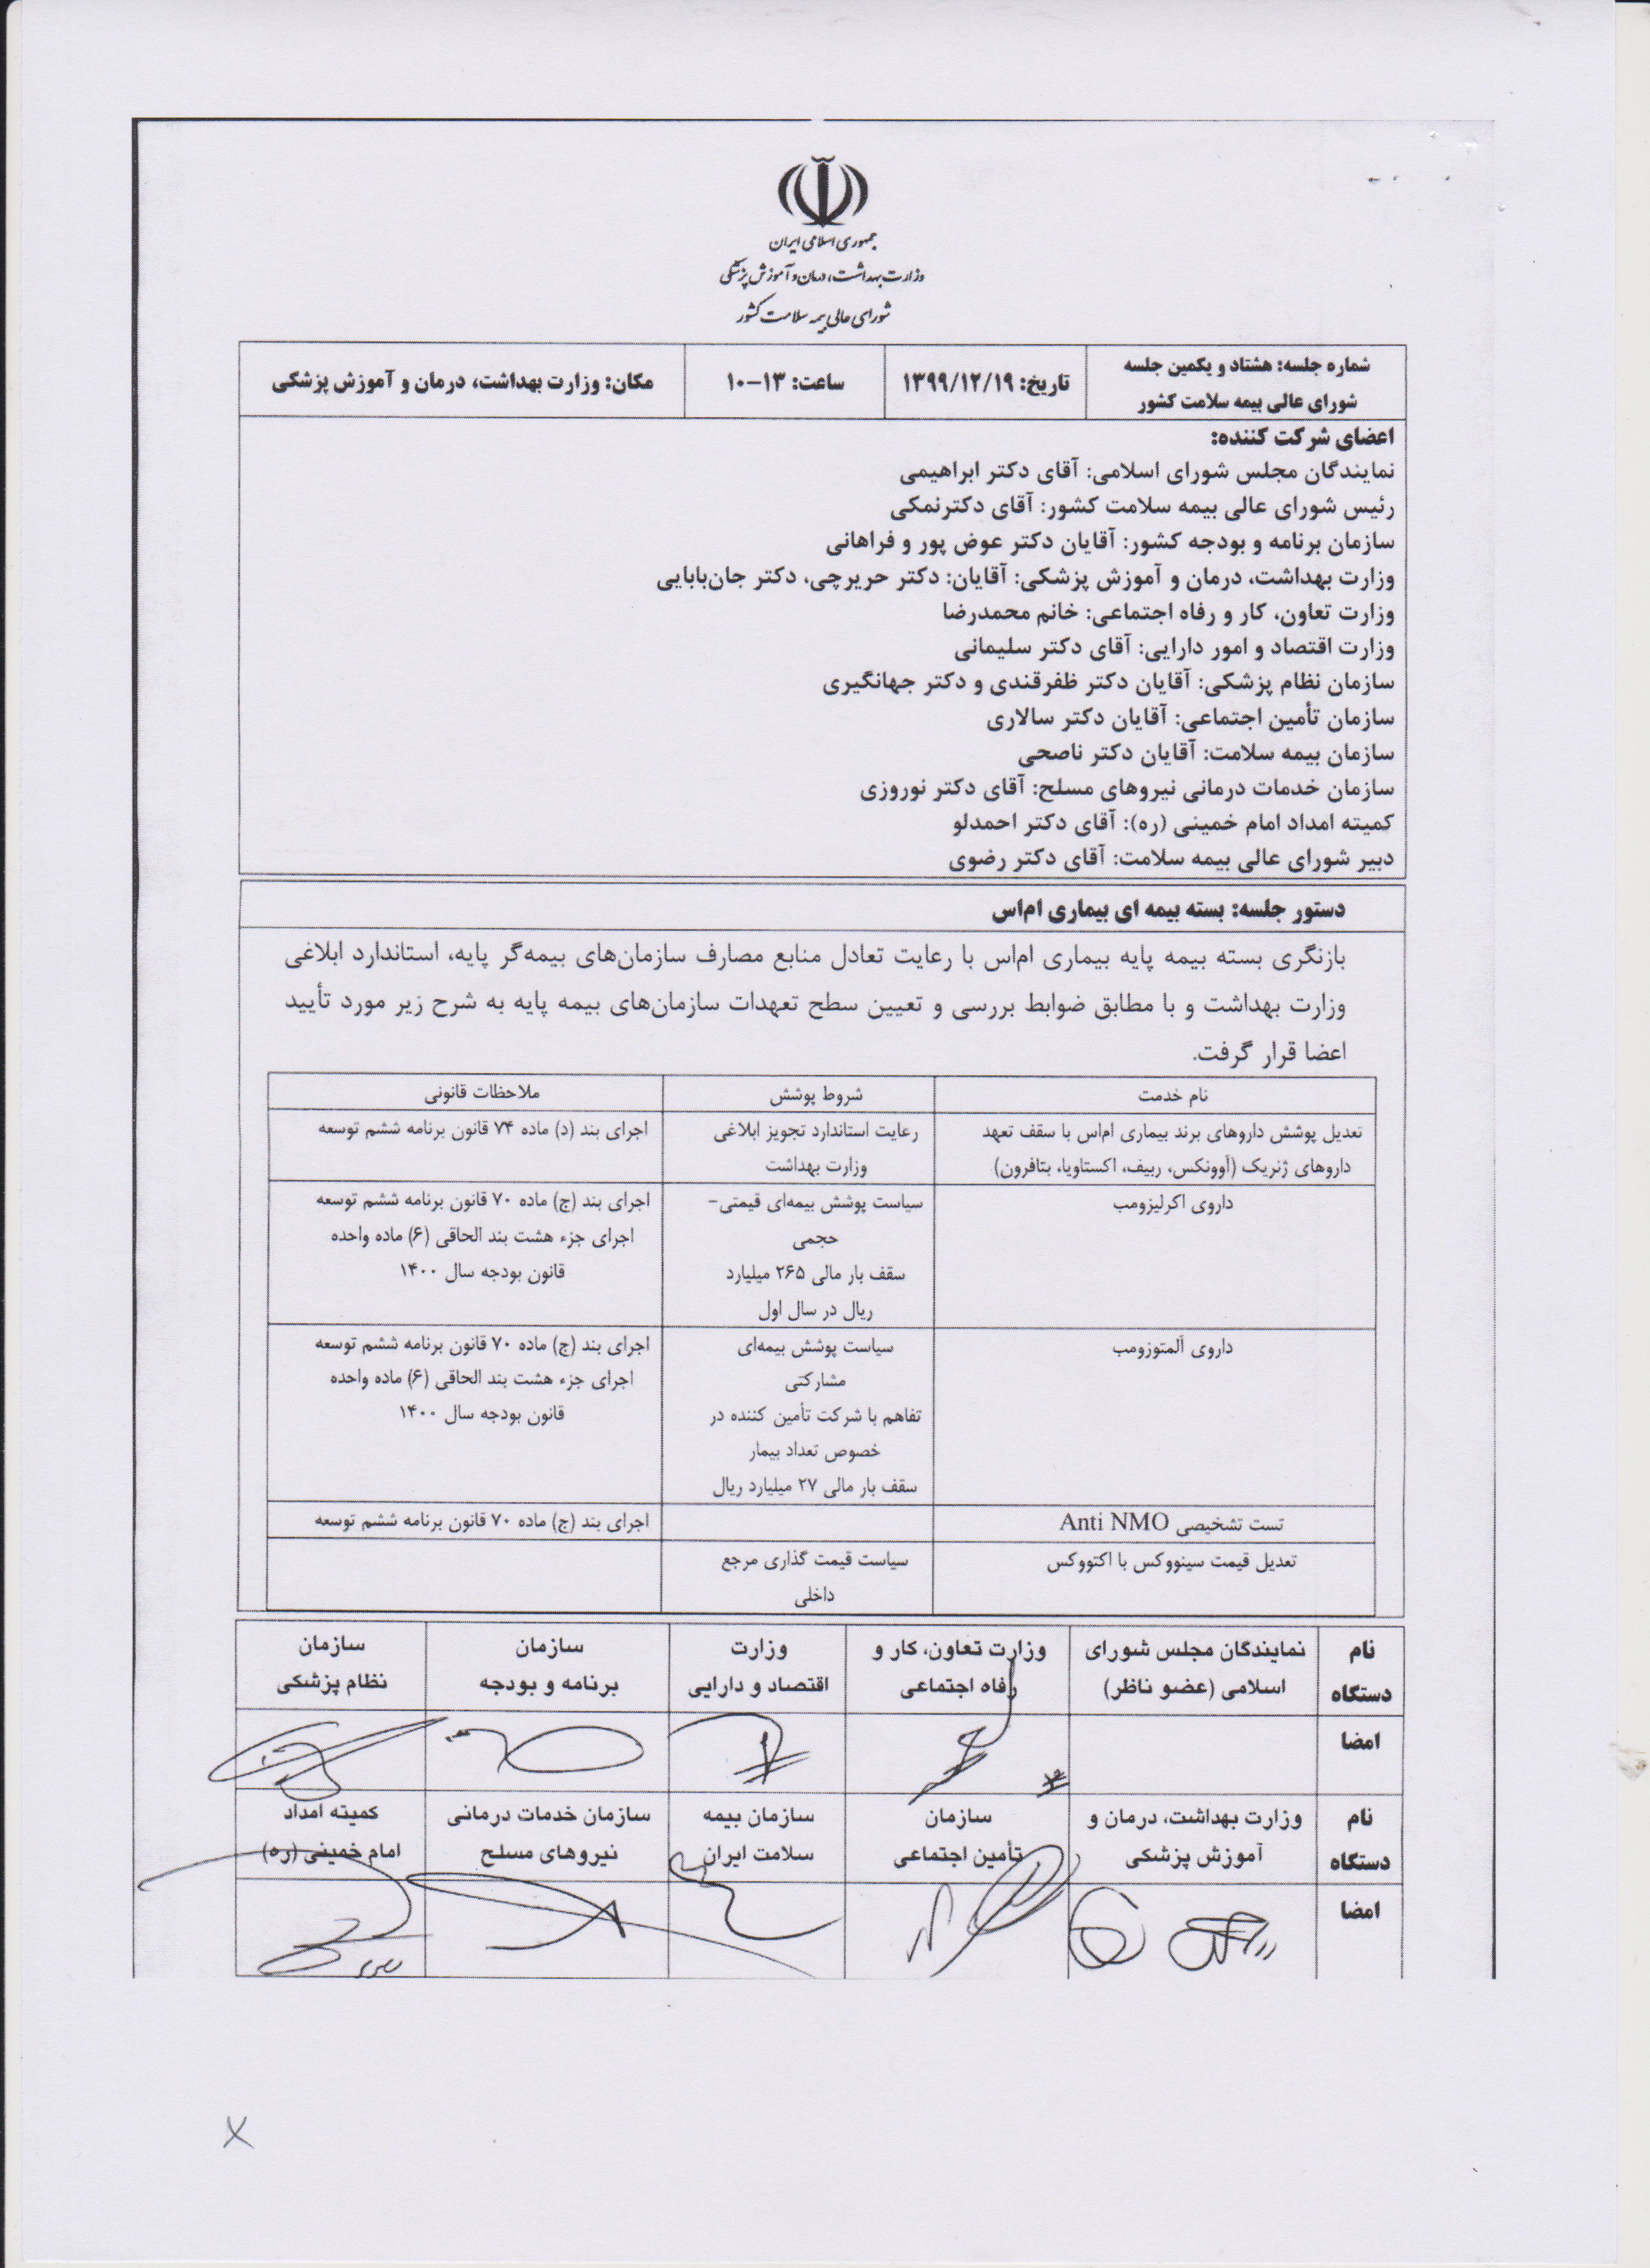 جمهوری اسلامی ایران
وزارت بهداشت، درمان و آموزش پزشکی
شورای عالی بیمه سلامت کشور
شماره جلسه: هشتاد و یکمین جلسه شورای عالی بیمه سلامت کشور
تاریخ: ۱۳۹۹/۱۲/۱۹
ساعت: ۱۳-۱۰
مکان: وزارت بهداشت، درمان و آموزش پزشکی
اعضای شرکت کننده:
نمایندگان مجلس شورای اسلامی: آقای دکتر ابراهیمی
رئیس شورای عالی بیمه سلامت کشور: آقای دکترنمکی
سازمان برنامه و بودجه کشور: آقایان دکتر عوض پور و فراهانی
وزارت بهداشت، درمان و آموزش پزشکی: آقایان: دکتر حریرچی، دکتر جان‌بابایی
وزارت تعاون، کار و رفاه اجتماعی: خانم محمدرضا
وزارت اقتصاد و امور دارایی: آقای دکتر سلیمانی
سازمان نظام پزشکی: آقایان دکتر ظفرقندی و دکتر جهانگیری
سازمان تأمین اجتماعی: آقایان دکتر سالاری
سازمان بیمه سلامت: آقایان دکتر ناصحی
سازمان خدمات درمانی نیروهای مسلح: آقای دکتر نوروزی
کمیته امداد امام خمینی (ره): آقای دکتر احمدلو
دبیر شورای عالی بیمه سلامت: آقای دکتر رضوی
دستور جلسه: بسته بیمه ای بیماری ام‌اس
بازنگری بسته بیمه پایه بیماری ام‌اس با رعایت تعادل منابع مصارف سازمان‌های بیمه‌گر پایه، استاندارد ابلاغی
وزارت بهداشت و با مطابق ضوابط بررسی و تعیین سطح تعهدات سازمان‌های بیمه پایه به شرح زیر مورد تأیید
اعضا قرار گرفت.
نام خدمت
شروط پوشش
ملاحظات قانونی
تعدیل پوشش داروهای برند بیماری ام‌اس با سقف تعهد
داروهای ژنریک (آوونکس، ربیف، اکستاویا، بتافرون)
رعایت استاندارد تجویز ابلاغی
وزارت بهداشت
اجرای بند (د) ماده ۷۴ قانون برنامه ششم توسعه
داروی اکرلیزومب
سیاست پوشش بیمه‌ای قیمتی-
حجمی
سقف بار مالی ۲۶۵ میلیارد
ریال در سال اول
اجرای بند (ج) ماده ۷۰ قانون برنامه ششم توسعه
اجرای جزء هشت بند الحاقی (۶) ماده واحده
قانون بودجه سال ۱۴۰۰
داروی آلمتوزومب
سیاست پوشش بیمه‌ای
مشارکتی
تفاهم با شرکت تأمین کننده در
خصوص تعداد بیمار
سقف بار مالی ۲۷ میلیارد ریال
اجرای بند (ج) ماده ۷۰ قانون برنامه ششم توسعه
اجرای جزء هشت بند الحاقی (۶) ماده واحده
قانون بودجه سال ۱۴۰۰
تست تشخیصی Anti NMO
اجرای بند (ج) ماده ۷۰ قانون برنامه ششم توسعه
تعدیل قیمت سینووکس با اکتووکس
سیاست قیمت گذاری مرجع
داخلی
نام دستگاه
نمایندگان مجلس شورای اسلامی (عضو ناظر)
وزارت تعاون، کار و رفاه اجتماعی
وزارت اقتصاد و دارایی
سازمان برنامه و بودجه
سازمان نظام پزشکی
امضا
نام دستگاه
وزارت بهداشت، درمان و آموزش پزشکی
سازمان تأمین اجتماعی
سازمان بیمه سلامت ایران
سازمان خدمات درمانی نیروهای مسلح
کمیته امداد امام خمینی (ره)
امضا